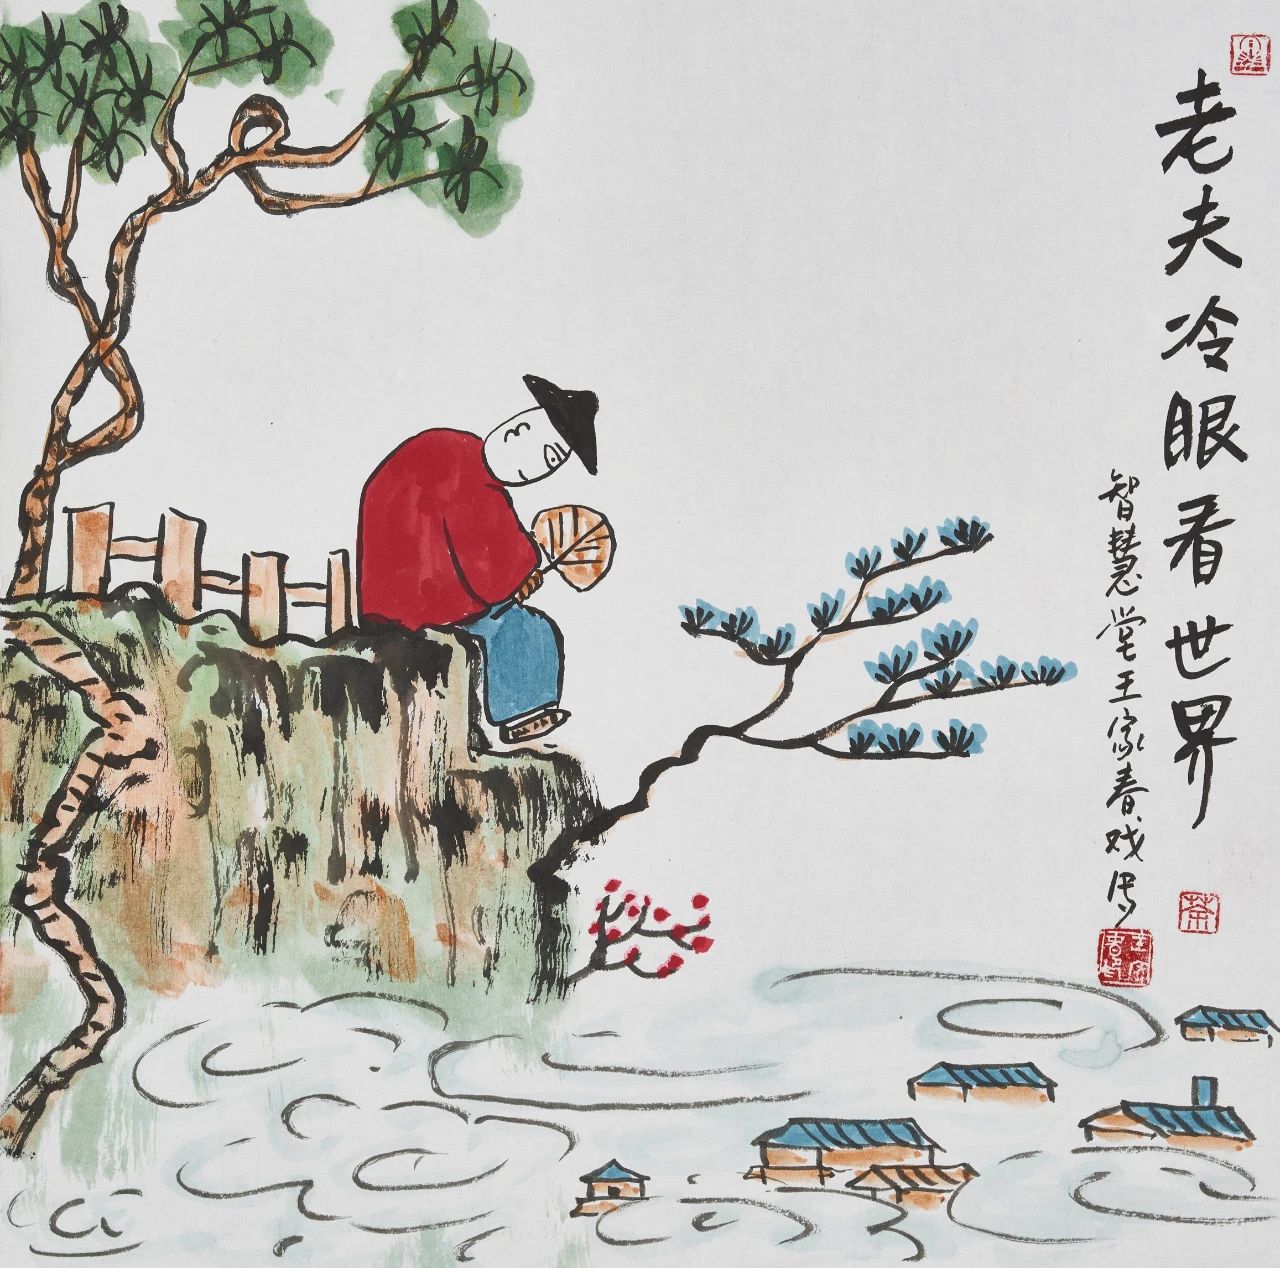 老夫冷眼看世界
智慧堂王家春戏笔